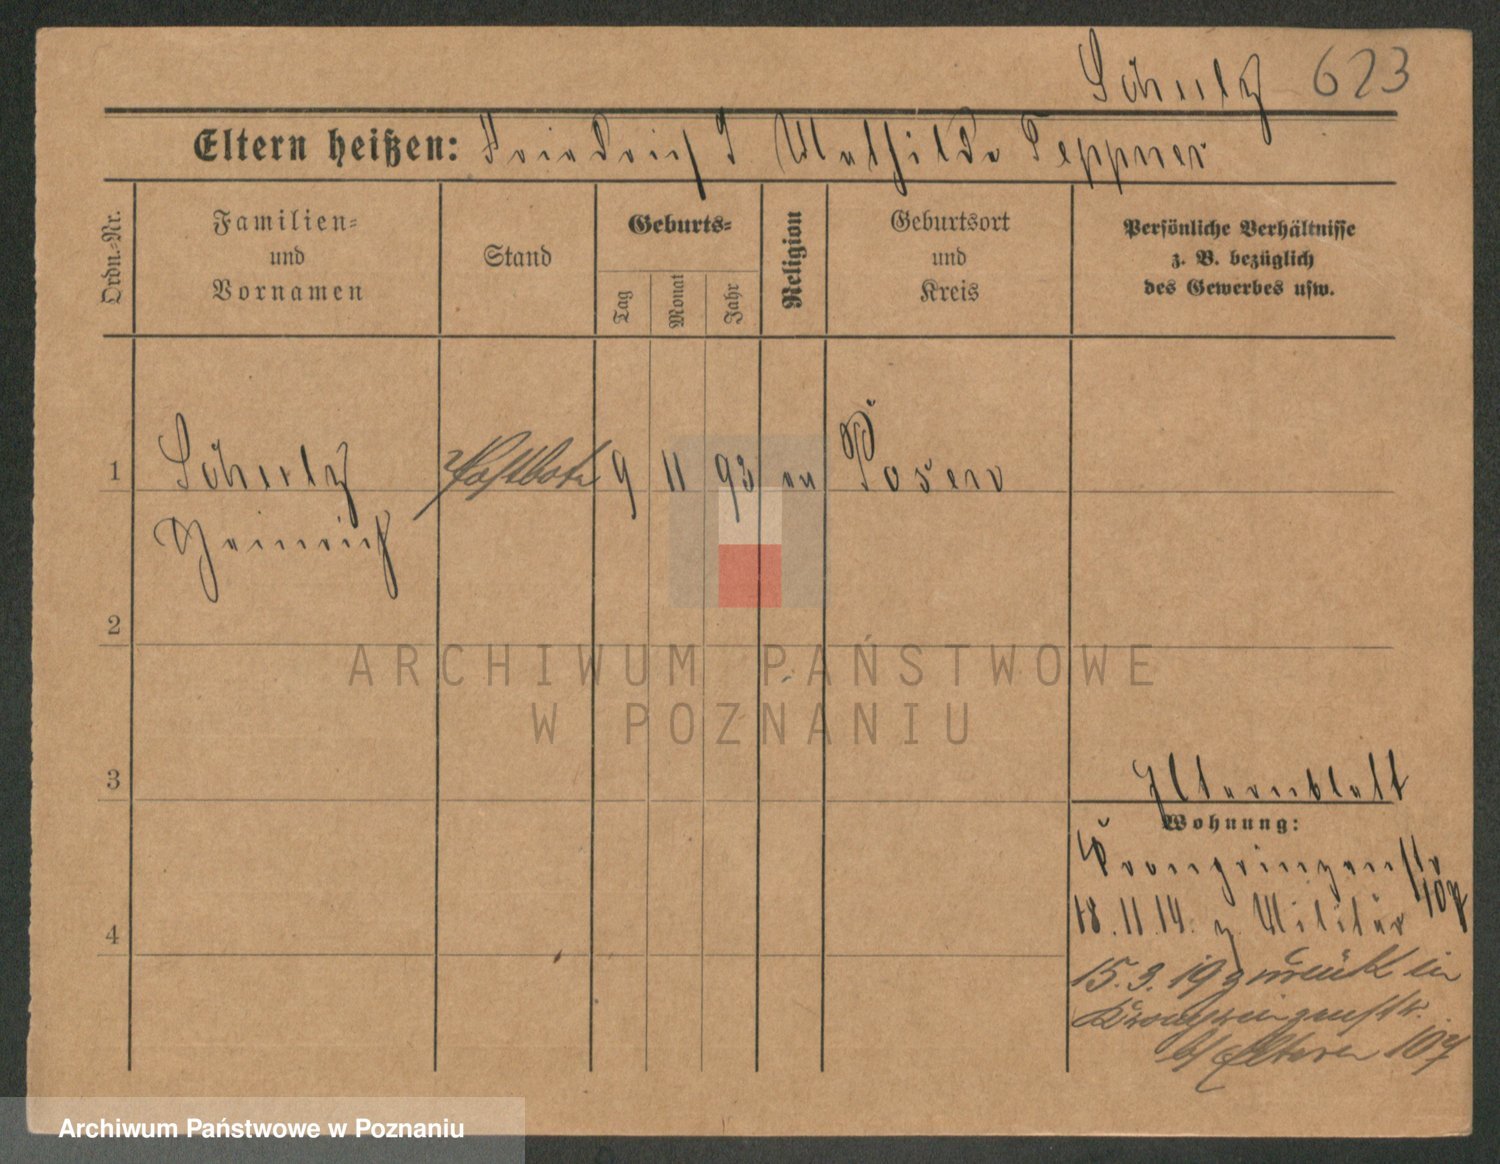 Schulz 623
Eltern heißen: Friedrich J Mathilde Teppner
Ordn.-Nr.
Familien-
und
Vornamen
Stand
Geburts-
Tag
Monat
Jahr
Religion
Geburtsort
und
Kreis
Persönliche Verhältnisse
z. B. bezüglich
des Gewerbes usw.
1 Schulz Postbote 9 11 93 ev Posen
Heinrich
2
ARCHIWUM PAŃSTWOWE
W POZNANIU
3
Elternblatt
Wohnung:
Kronprinzenstr
107
4
18.11.14. z. Militär
15.3.19 zurück in
Kronprinzenstr.
b/ Eltern 107
Archiwum Państwowe w Poznaniu